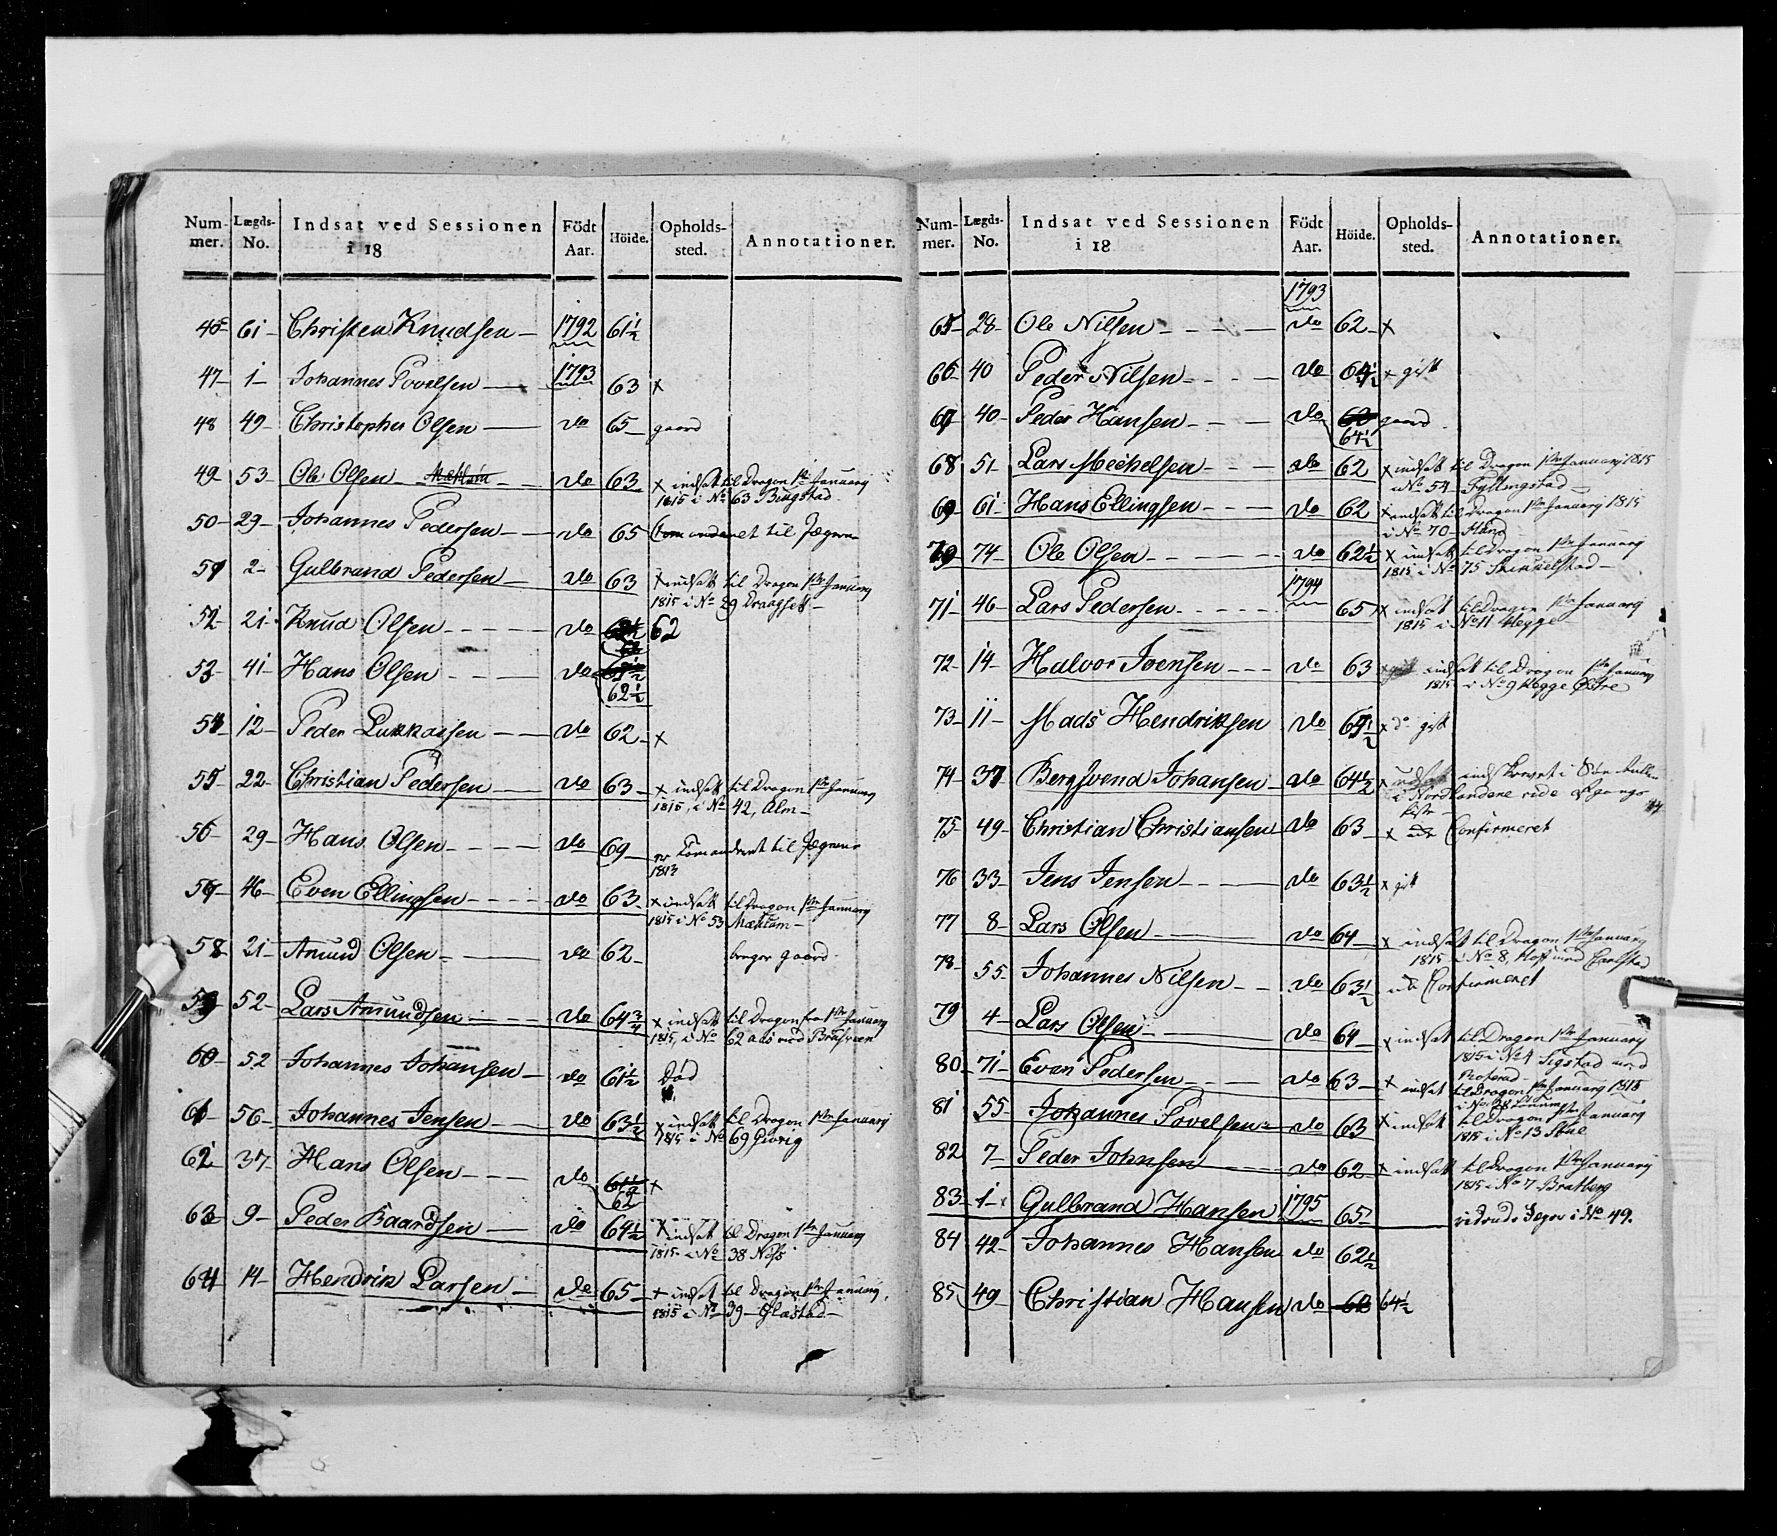 Num- Lægds- Indsat ved Sessionen Födt Höide. Opholds- Annotationer.
mer. No. i 18 Aar. sted.
46 61 Christen Knudsen 1792 61½
47 1 Johannes Povelsen 1793 63 x
48 49 Christopher Olsen do 65 gaard
49 53 Ole Olsen Mæhlum do 63 x indsatt til Dragon 1ste Januarij
1815 i No 63 Bingstad
50 29 Johannes Pedersen do 65 Comanderet til Jægerne
51 2 Gulbrand Pedersen do 63 x indsatt til Dragon 1ste Januarij
1815 i No 29 Draagset
52 21 Knud Olsen do 62
53 41 Hans Olsen do 62½
54 12 Peder Lukkassen do 62 x
55 22 Christian Pedersen do 63 x indsatt til Dragon 1ste Januarij
1815, i No 42, Alm
56 29 Hans Olsen do 69 er Comanderet til Jægerne
1813
57 46 Even Ellingsen do 63 x indsatt til Dragon 1ste Januarij
1815 i No 53 Mæhlum
58 21 Amund Olsen do 62 gaard
59 52 Lars Amundsen do 64¾ x indsatt til Dragon fra 1ste Januarij
1815, i No 62
60 52 Johannes Johansen do 61½ Död
61 56 Johannes Jensen do 63½ x indsatt til Dragon 1ste Januarij
1815 i No 69 Giövig
62 37 Hans Olsen do 61½ x
62
63 9 Peder Baardsen do 64½ x indsatt til Dragon 1ste Januarij
1815 i No 38 Næss
64 14 Hendrik Larsen do 65 x indsat til Dragon 1ste Januarij,
1815 i No 39 Glæstad
Num- Lægds- Indsat ved Sessionen Födt Höide. Opholds- Annotationer.
mer. No. i 18 Aar. sted.
1793
65 28 Ole Nilsen do 62 x
66 40 Peder Nilsen do 64½ x gift
67 40 Peder Hansen do 60 gaard
64½
68 51 Lars Mechelsen do 62 x indsatt til Dragon 1ste Januarij 1815
i No 54 Fyllingstad
69 61 Hans Ellingsen do 62 x indsatt til Dragon 1ste Januarij 1815
i No 70
70 74 Ole Olsen do 62½ x indsatt til Dragon 1ste Januarij
1815 i No 75 Skinkelstad
71 46 Lars Pedersen 1794 65 x indsatt til Dragon 1ste Januarij
1815 i No 11 Hegge
72 14 Halvor Joensen do 63 x gift indsatt til Dragon 1ste Januarij
1815 i No 9 Hegge Östre
73 11 Mads Hendriksen do 64½ x do gift
74 37 Bergsvend Johansen do 64½ x indskrevet i Söe Rullen
i Nordlandene
75 49 Christian Christiansen do 63 x Confirmeret
76 33 Jens Jensen do 63½ x gift
77 8 Lars Olsen do 64 x indsatt til Dragon 1ste Januarij
1815 i No 8, Hoff med Carlstad
78 55 Johannes Nilsen do 63½ Confirmeret
79 4 Lars Olsen do 64 x indsatt til Dragon 1ste Januarij
1815 i No 4 Sigstad med
80 71 Even Pedersen do 63 x indsat til Dragon 1ste Januarij 1815
81 55 Johannes Povelsen do 63 x indsatt til Dragon 1ste Januarij
1815 i No 13
82 7 Peder Johnsen do 62 x indsatt til Dragon 1ste Januarij
1815 i No 7 Bratberg
83 1 Gulbrand Hansen 1795 65 i No 49.
84 42 Johannes Hansen do 62½
85 49 Christian Hansen do 60 64½